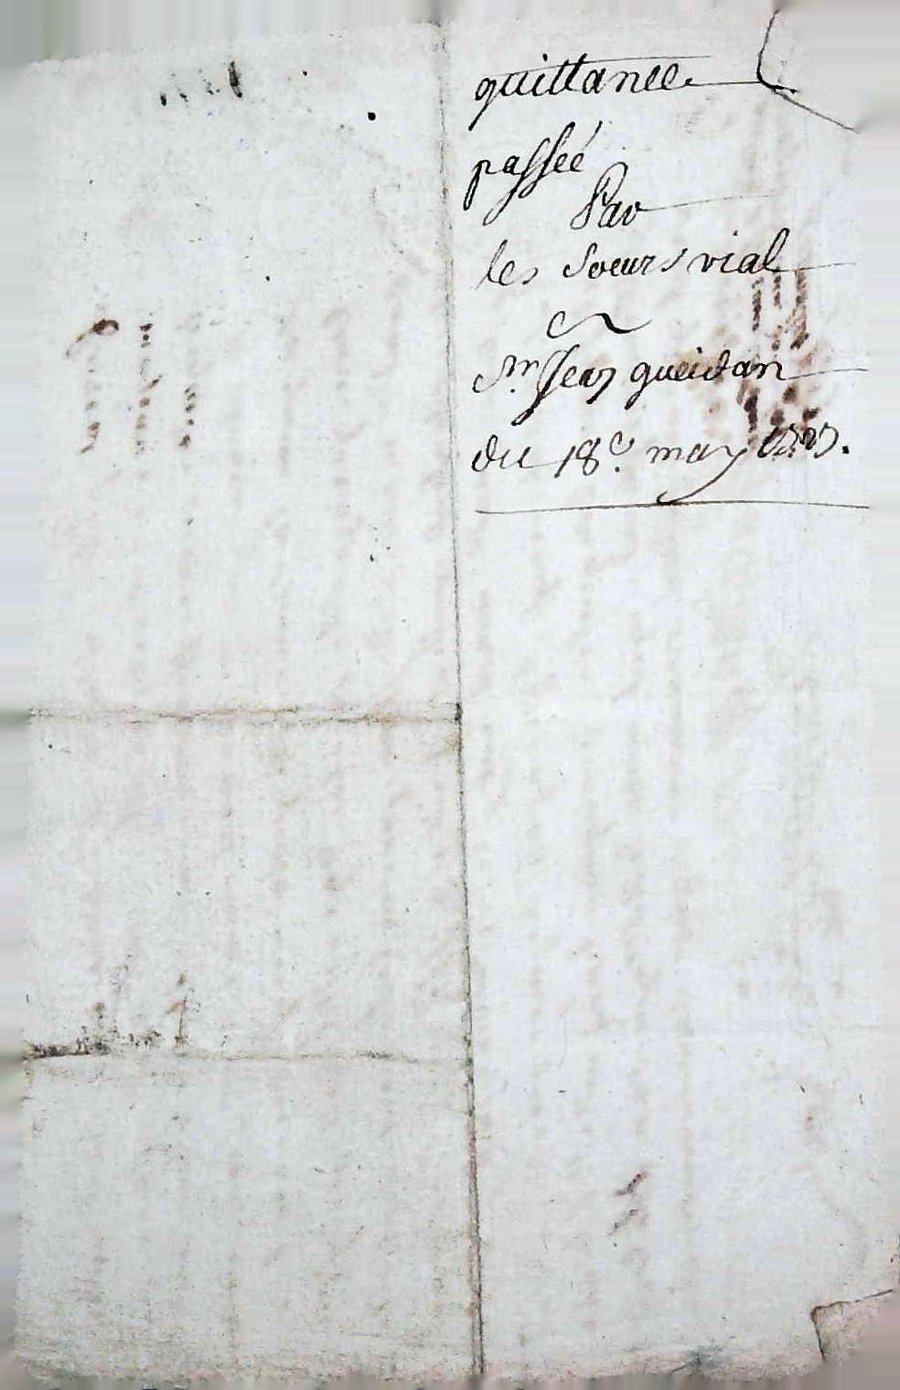 quittance
passée
Par
les Soeurs vial
a
Sr. Jean gueidan
du 18e. may